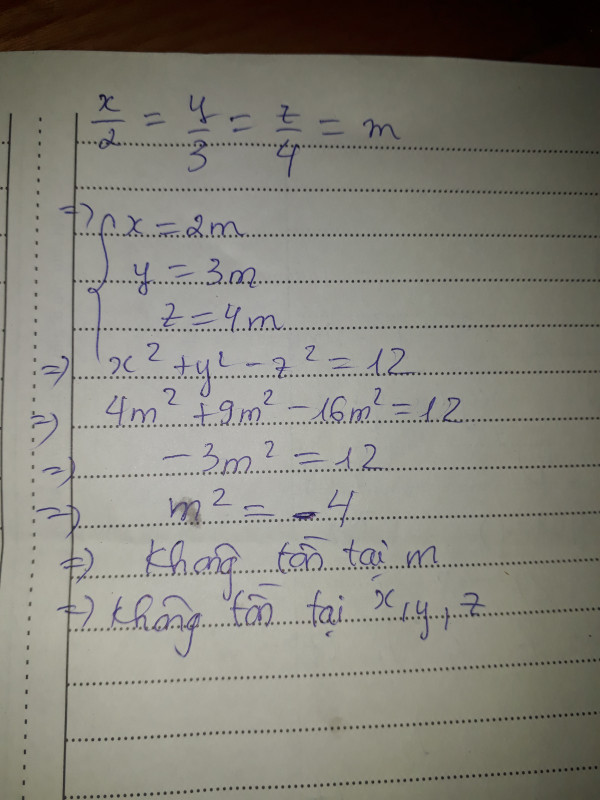 x/2 = y/3 = z/4 = m
=> { x = 2m
y = 3m
z = 4m
=> x² + y² - z² = 12
=> 4m² + 9m² - 16m² = 12
=> -3m² = 12
=> m² = -4
=> không tồn tại m
=> không tồn tại x, y, z